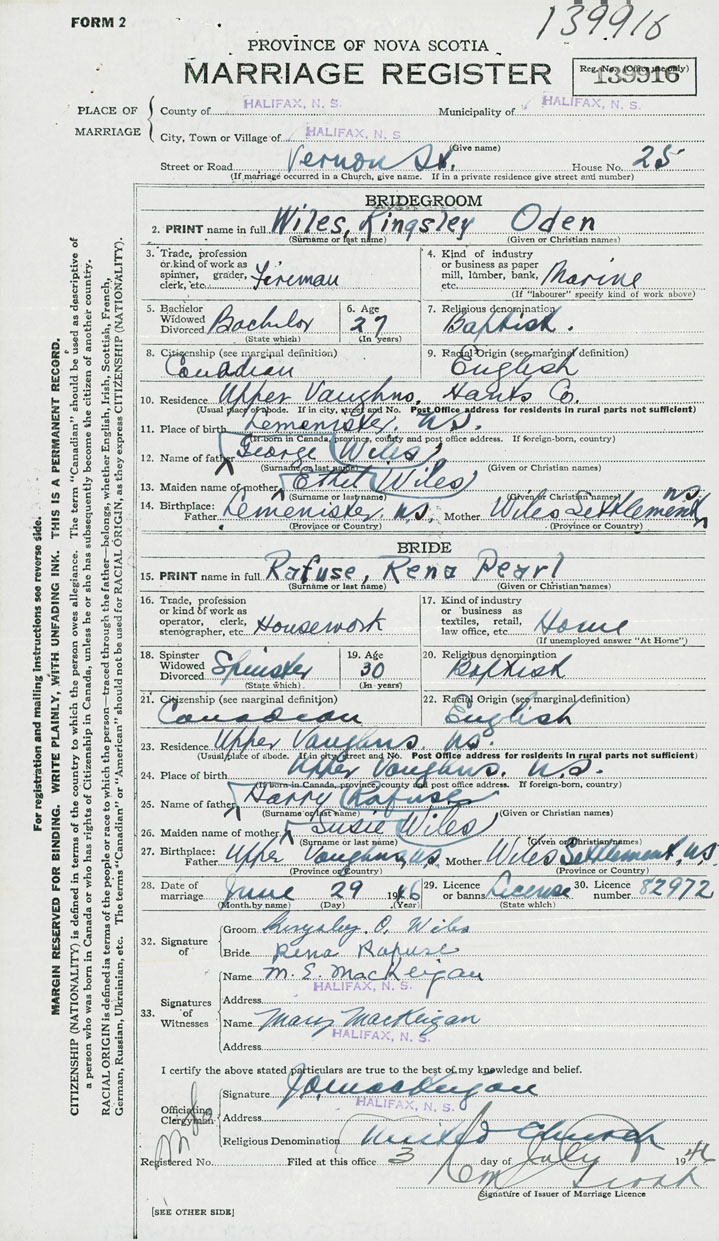 FORM 2
139916
PROVINCE OF NOVA SCOTIA
MARRIAGE REGISTER
Reg. No. (Office use only)
139916
PLACE OF MARRIAGE
County of HALIFAX, N. S. Municipality of HALIFAX, N. S.
City, Town or Village of HALIFAX, N. S.
(Give name)
Street or Road Vernon St. House No. 25
(If marriage occurred in a Church, give name. If in a private residence give street and number)
BRIDEGROOM
2. PRINT name in full Wiles, Kingsley Oden
(Surname or last name) (Given or Christian names)
3. Trade, profession or kind of work as spinner, grader, clerk, etc. Fireman
4. Kind of industry or business as paper mill, lumber, bank, etc. Marine
(If "labourer" specify kind of work above)
5. Bachelor Widowed Divorced Bachelor (State which)
6. Age 27 (In years)
7. Religious denomination Baptist.
8. Citizenship (see marginal definition) Canadian
9. Racial Origin (see marginal definition) English
10. Residence Upper Vaughns, Hants Co.
(Usual place of abode. If in city, street and No. Post Office address for residents in rural parts not sufficient)
11. Place of birth Lemenister. N.S.
(If born in Canada, province, county and post office address. If foreign-born, country)
12. Name of father George (Wiles)
(Surname or last name) (Given or Christian names)
13. Maiden name of mother Ethel (Wiles)
(Surname or last name) (Given or Christian names)
14. Birthplace: Father Lemenister, N.S. Mother Wiles Settlement N.S.
(Province or Country) (Province or Country)
BRIDE
15. PRINT name in full Rafuse, Rena Pearl
(Surname or last name) (Given or Christian names)
16. Trade, profession or kind of work as operator, clerk, stenographer, etc. Housework
17. Kind of industry or business as textiles, retail, law office, etc. Home
(If unemployed answer "At Home")
18. Spinster Widowed Divorced Spinster (State which)
19. Age 30 (In years)
20. Religious denomination Baptist
21. Citizenship (see marginal definition) Canadian
22. Racial Origin (see marginal definition) English
23. Residence Upper Vaughns. N.S.
(Usual place of abode. If in city, street and No. Post Office address for residents in rural parts not sufficient)
24. Place of birth Upper Vaughns. N.S.
(If born in Canada, province, county and post office address. If foreign-born, country)
25. Name of father Harry (Rafuse)
(Surname or last name) (Given or Christian names)
26. Maiden name of mother Susie (Wiles)
(Surname or last name) (Given or Christian names)
27. Birthplace: Father Upper Vaughns, N.S. Mother Wiles Settlement, N.S.
(Province or Country) (Province or Country)
28. Date of marriage June 29 1946
(Month by name) (Day) (Year)
29. Licence or banns License (State which)
30. Licence number 82972
32. Signature of
Groom Kingsley. O. Wiles
Bride Rena Rafuse
33. Signatures of Witnesses
Name M. E. MacKeigan
Address HALIFAX, N. S.
Name Mary MacKeigan
Address HALIFAX, N. S.
I certify the above stated particulars are true to the best of my knowledge and belief.
Officiating Clergyman
Signature MacKeigan
Address HALIFAX, N. S.
Religious Denomination United Church
Registered No. Filed at this office 3 day of July 1946
Signature of Issuer of Marriage Licence
[SEE OTHER SIDE]
For registration and mailing instructions see reverse side.
MARGIN RESERVED FOR BINDING. WRITE PLAINLY, WITH UNFADING INK. THIS IS A PERMANENT RECORD.
CITIZENSHIP (NATIONALITY) is defined in terms of the country to which the person owes allegiance. The term "Canadian" should be used as descriptive of
a person who was born in Canada or who has rights of Citizenship in Canada, unless he or she has subsequently become the citizen of another country.
RACIAL ORIGIN is defined in terms of the people or race to which the person—traced through the father—belongs, whether English, Irish, Scottish, French,
German, Russian, Ukrainian, etc. The terms "Canadian" or "American" should not be used for RACIAL ORIGIN, as they express CITIZENSHIP (NATIONALITY).